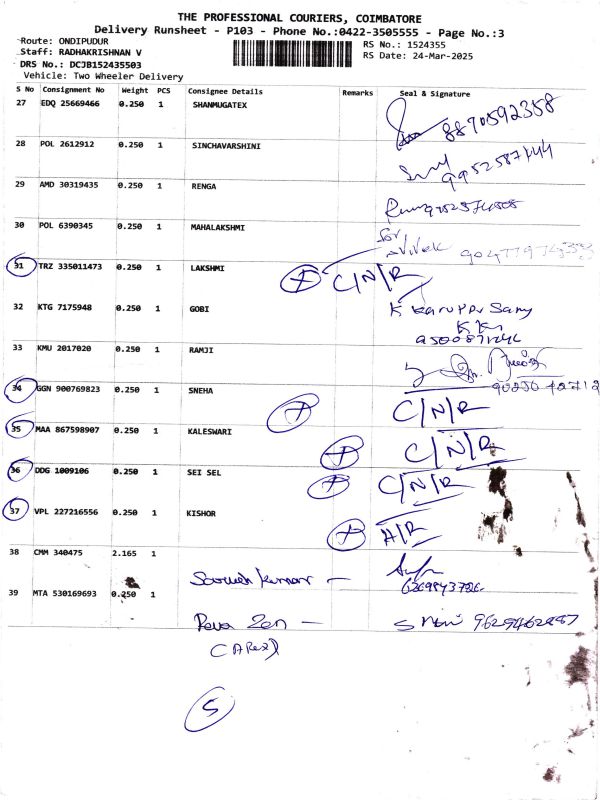 THE PROFESSIONAL COURIERS, COIMBATORE
Delivery Runsheet - P103 - Phone No.:0422-3505555 - Page No.:3
Route: ONDIPUDUR
RS No.: 1524355
Staff: RADHAKRISHNAN V
RS Date: 24-Mar-2025
DRS No.: DCJB152435503
Vehicle: Two Wheeler Delivery
S No Consignment No Weight PCS Consignee Details Remarks Seal & Signature
27 EDQ 25669466 0.250 1 SHANMUGATEX
8870592358
28 POL 2612912 0.250 1 SINCHAVARSHINI
29 AMD 30319435 0.250 1 RENGA
30 POL 6390345 0.250 1 MAHALAKSHMI
for
31 TRZ 335011473 0.250 1 LAKSHMI C/N/R
32 KTG 7175948 0.250 1 GOBI
33 KMU 2017020 0.250 1 RAMJI
34 GGN 900769823 0.250 1 SNEHA C/N/R
35 MAA 867598907 0.250 1 KALESWARI C/N/R
36 DDG 1009106 0.250 1 SEI SEL C/N/R
37 VPL 227216556 0.250 1 KISHOR A/R
38 CMM 340475 2.165 1
39 MTA 530169693 0.250 1
5